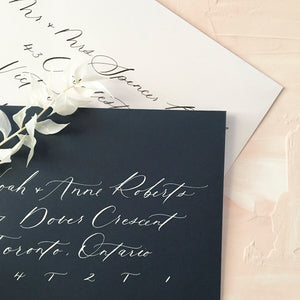 Mr & Mrs Spencer
43
Vic
oah & Anne Roberts
Dover Crescent
Toronto, Ontario
4 T 2 T 1